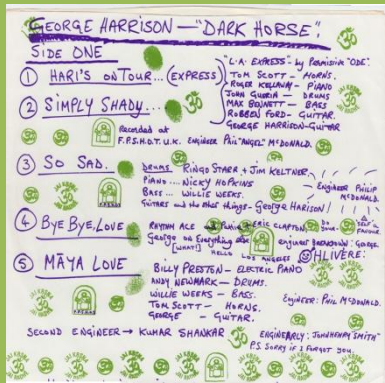 GEORGE HARRISON — "DARK HORSE".
SIDE ONE
① HARI'S ON TOUR... (EXPRESS)
"L.A. EXPRESS" by Permissive "ODE".
TOM SCOTT - HORNS.
ROGER KELLAWAY - PIANO
JOHN GUERIN - DRUMS
MAX BENNETT - BASS
ROBBEN FORD - GUITAR.
GEORGE HARRISON - GUITAR
② SIMPLY SHADY...
Recorded at
F.P.S.H.O.T. U.K. ENGINEER Phil "ANGEL" McDONALD.
③ SO SAD.
DRUMS RINGO STARR + JIM KELTNER.
PIANO .... NICKY HOPKINS
BASS... WILLIE WEEKS.
GUITARS and the other things - George HARISON!
Engineer PHILIP
McDONALD.
④ BYE BYE, LOVE
RHYTHM ALE
ERIC CLAPTON.
George on Everything else
[WHAT!]
HELLO LOS ANGELES
DO YOUR-
SELF A
FAVOUR.
ENGINEER GEORGE.
OHLIVERE:
⑤ MĀYA LOVE
BILLY PRESTON - ELECTRIC PIANO
ANDY NEWMARK - DRUMS.
WILLIE WEEKS - BASS.
TOM SCOTT - HORNS.
GEORGE - GUITAR.
Engineer: PHIL McDONALD.
SECOND ENGINEER → KUMAR SHANKAR
ENGINEARLY: JOHN HENRY SMITH
P.S. SORRY IF I FORGOT YOU.